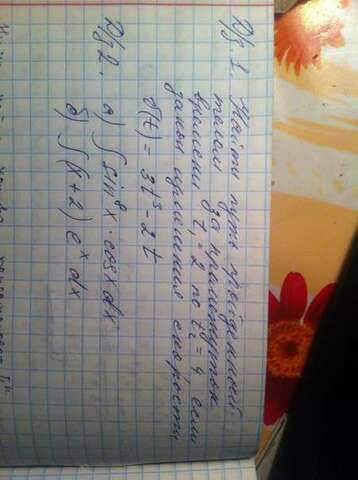 Дз 1. Найти путь пройденный
телом за промежуток
времени t₁ = 2 по t₂ = 4 если
дано уравнение скорости
v(t) = 3t³ - 2t
Дз 2. а) ∫ sin⁸x · cosx dx
б) ∫ (x+2) eˣ dx